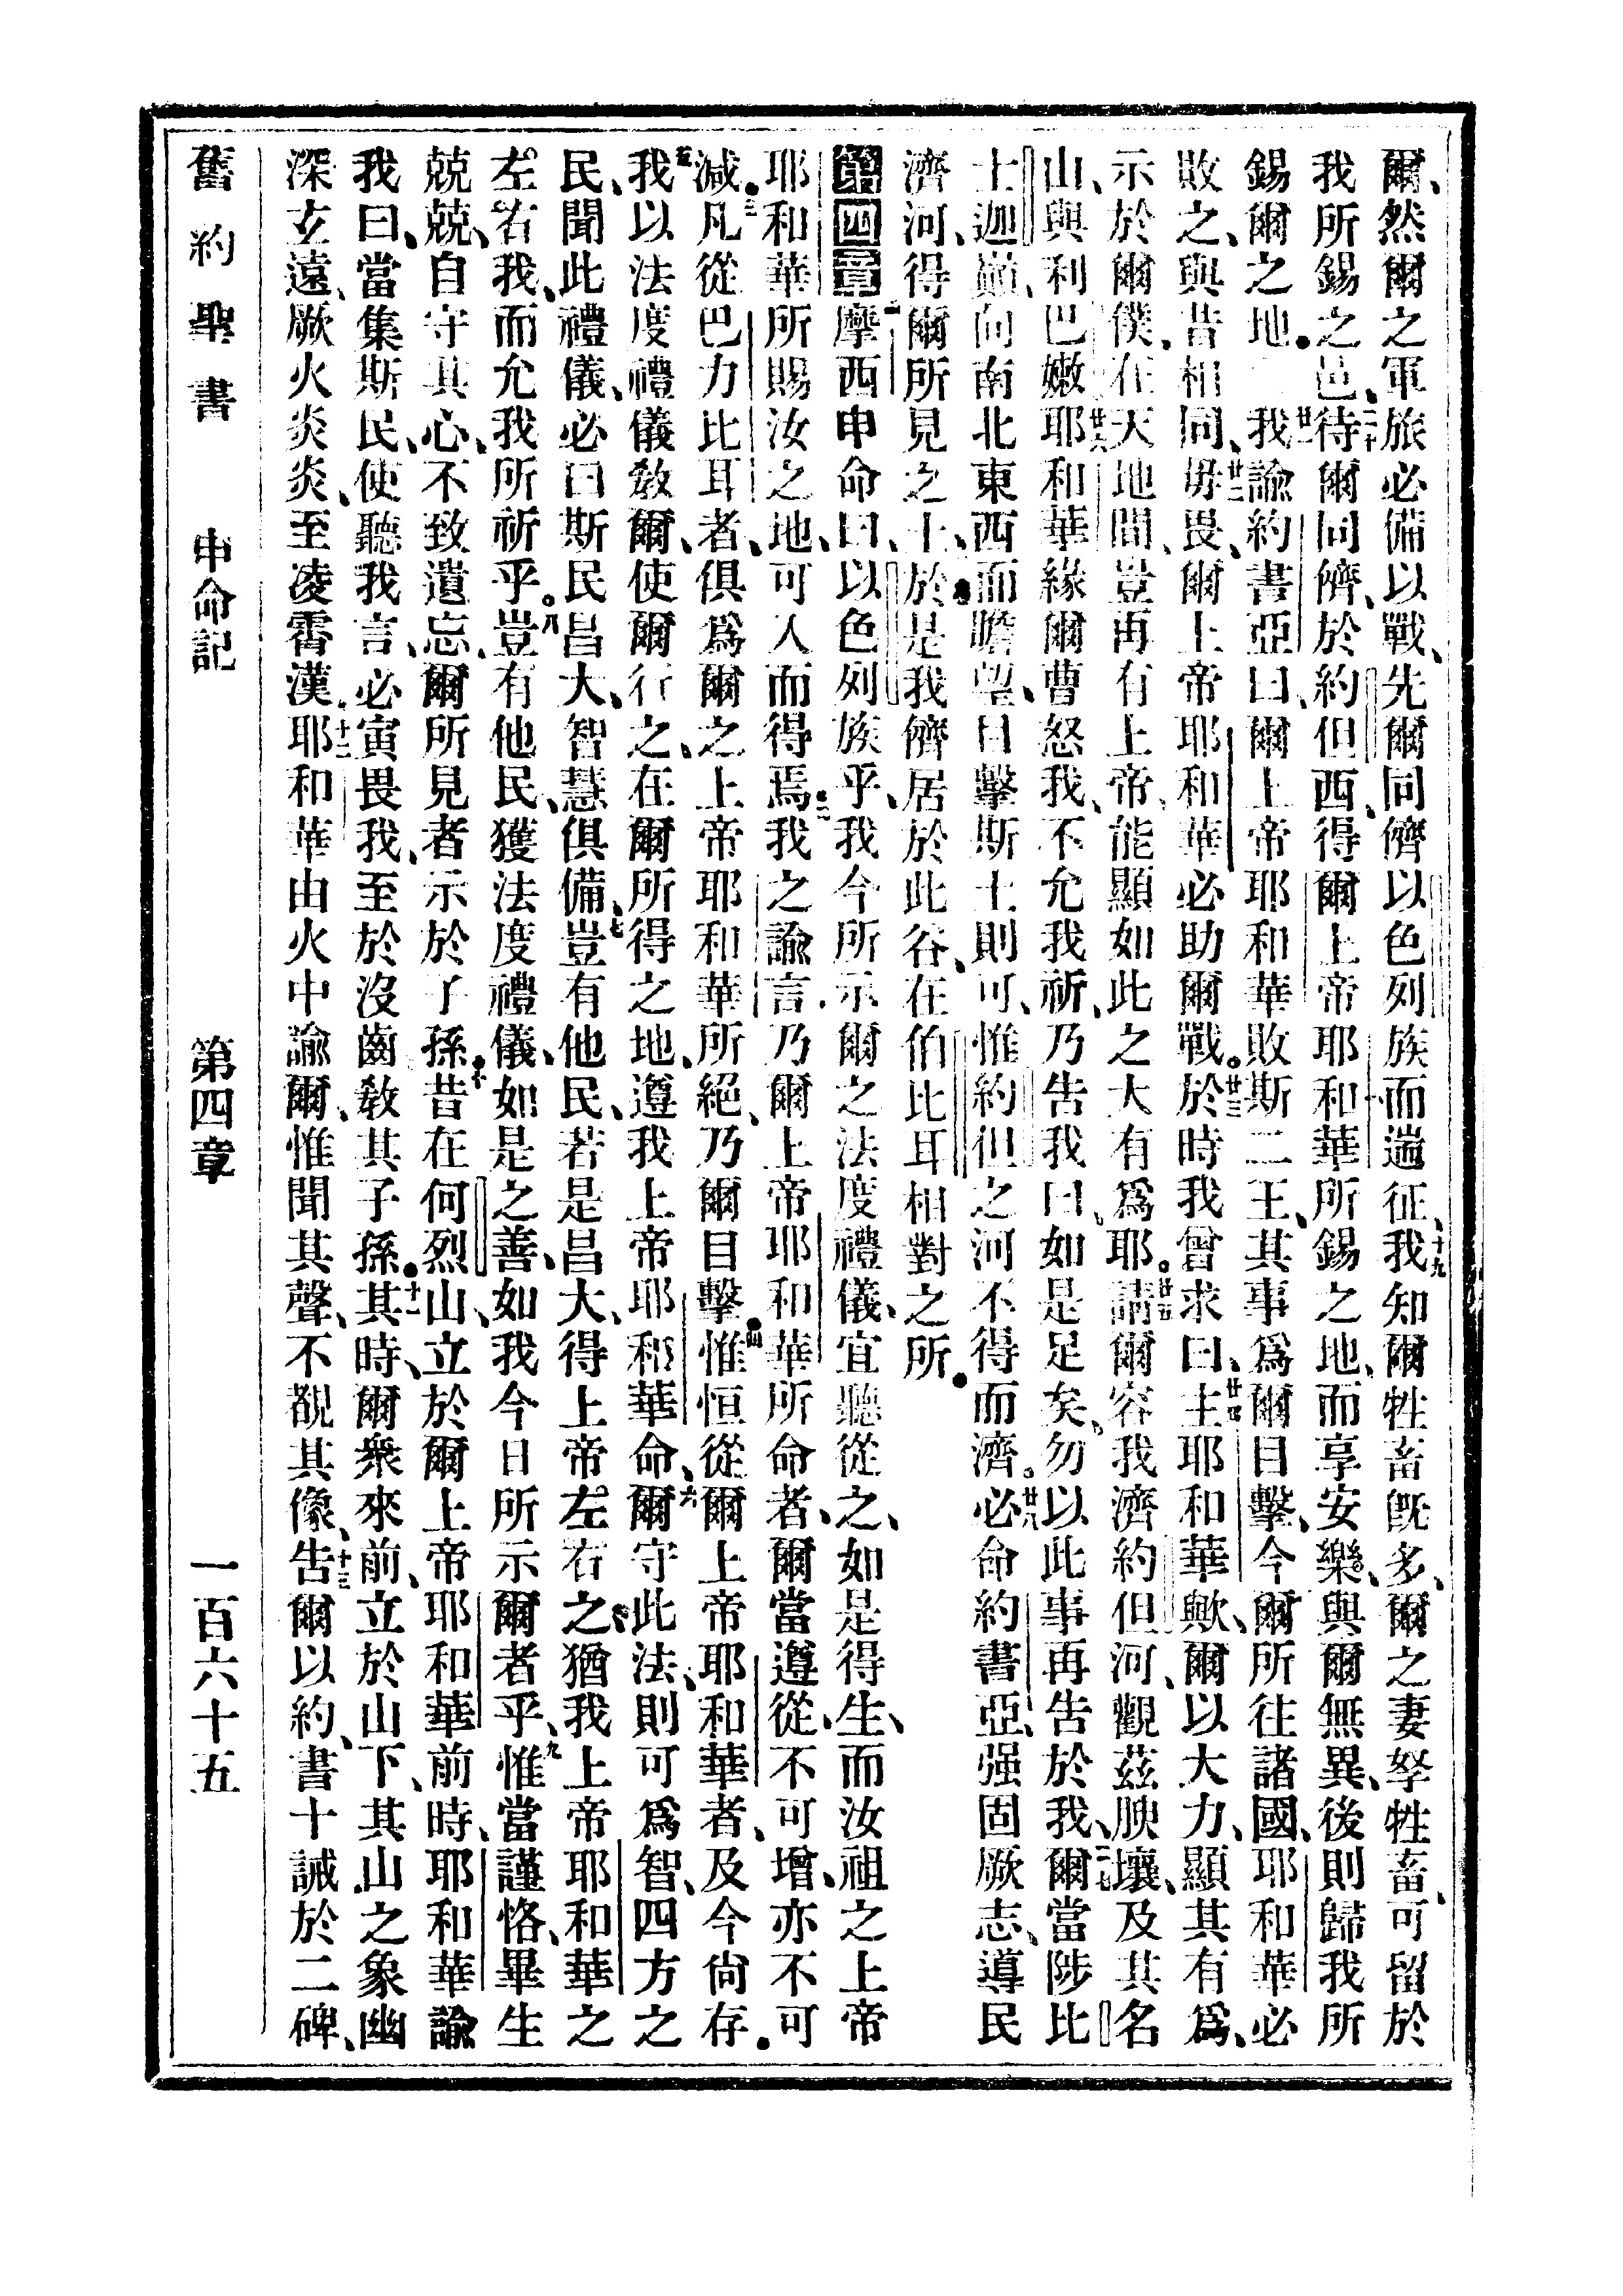 爾、然爾之軍旅必備以戰、先爾同儕以色列族而遄征、十九我知爾牲畜旣多、爾之妻孥牲畜、可留於
我所錫之邑、二十待爾同儕、於約但西、得爾上帝耶和華所錫之地、而享安樂、與爾無異、後則歸我所
錫爾之地●廿一我諭約書亞曰、爾上帝耶和華敗斯二王、其事爲爾目擊、今爾所往諸國、耶和華必
敗之、與昔相同、廿二毋畏、爾上帝耶和華必助爾戰。廿三於時我曾求曰、廿四主耶和華歟、爾以大力、顯其有爲、
示於爾僕、在天地間、豈再有上帝、能顯如此之大有爲耶。廿五請爾容我濟約但河、觀茲腴壤、及其名
山、與利巴嫩、廿六耶和華緣爾曹怒我、不允我祈、乃告我曰。如是足矣、勿以此事再告於我、二十七爾當陟比
士迦巔、向南北東西而瞻望、目擊斯土則可、惟約但之河不得而濟。廿八必命約書亞、强固厥志、導民
濟河、得爾所見之土、於是我儕居於此谷、在伯比耳相對之所●
第四章 一摩西申命曰、以色列族乎、我今所示爾之法度禮儀、宜聽從之、如是得生、而汝祖之上帝
耶和華所賜汝之地、可入而得焉●二我之諭言、乃爾上帝耶和華所命者、爾當遵從、不可增、亦不可
減●三凡從巴力比耳者、俱爲爾之上帝耶和華所絕、乃爾目擊●四惟恒從爾上帝耶和華者、及今尙存●
五我以法度禮儀敎爾、使爾行之、在爾所得之地、遵我上帝耶和華命、六爾守此法、則可爲智、四方之
民、聞此禮儀、必曰斯民昌大、智慧俱備、七豈有他民、若是昌大、得上帝左右之、猶我上帝耶和華之
左右我、而允我所祈乎。八豈有他民、獲法度禮儀、如是之善、如我今日所示爾者乎、九惟當謹恪、畢生
兢兢、自守其心、不致遺忘、爾所見者、示於子孫●十昔在何烈山、立於爾上帝耶和華前時、耶和華諭
我曰、當集斯民、使聽我言、必寅畏我、至於沒齒、敎其子孫●十一其時、爾衆來前、立於山下、其山之象幽
深玄遠、厥火炎炎、至凌霄漢、十二耶和華由火中諭爾、惟聞其聲、不覩其像、十三告爾以約、書十誡於二碑、
舊約聖書 申命記 第四章 一百六十五